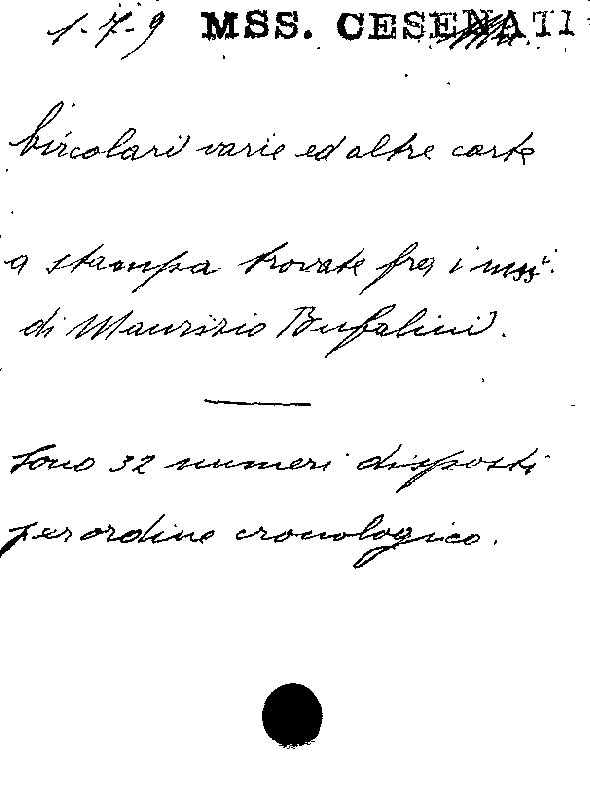 1-7-9 MSS. CESENATI
Circolari varie ed altre carte
a stampa trovate fra i mss.ti
di Maurizio Bufalini.
Sono 32 numeri disposti
per ordine cronologico.